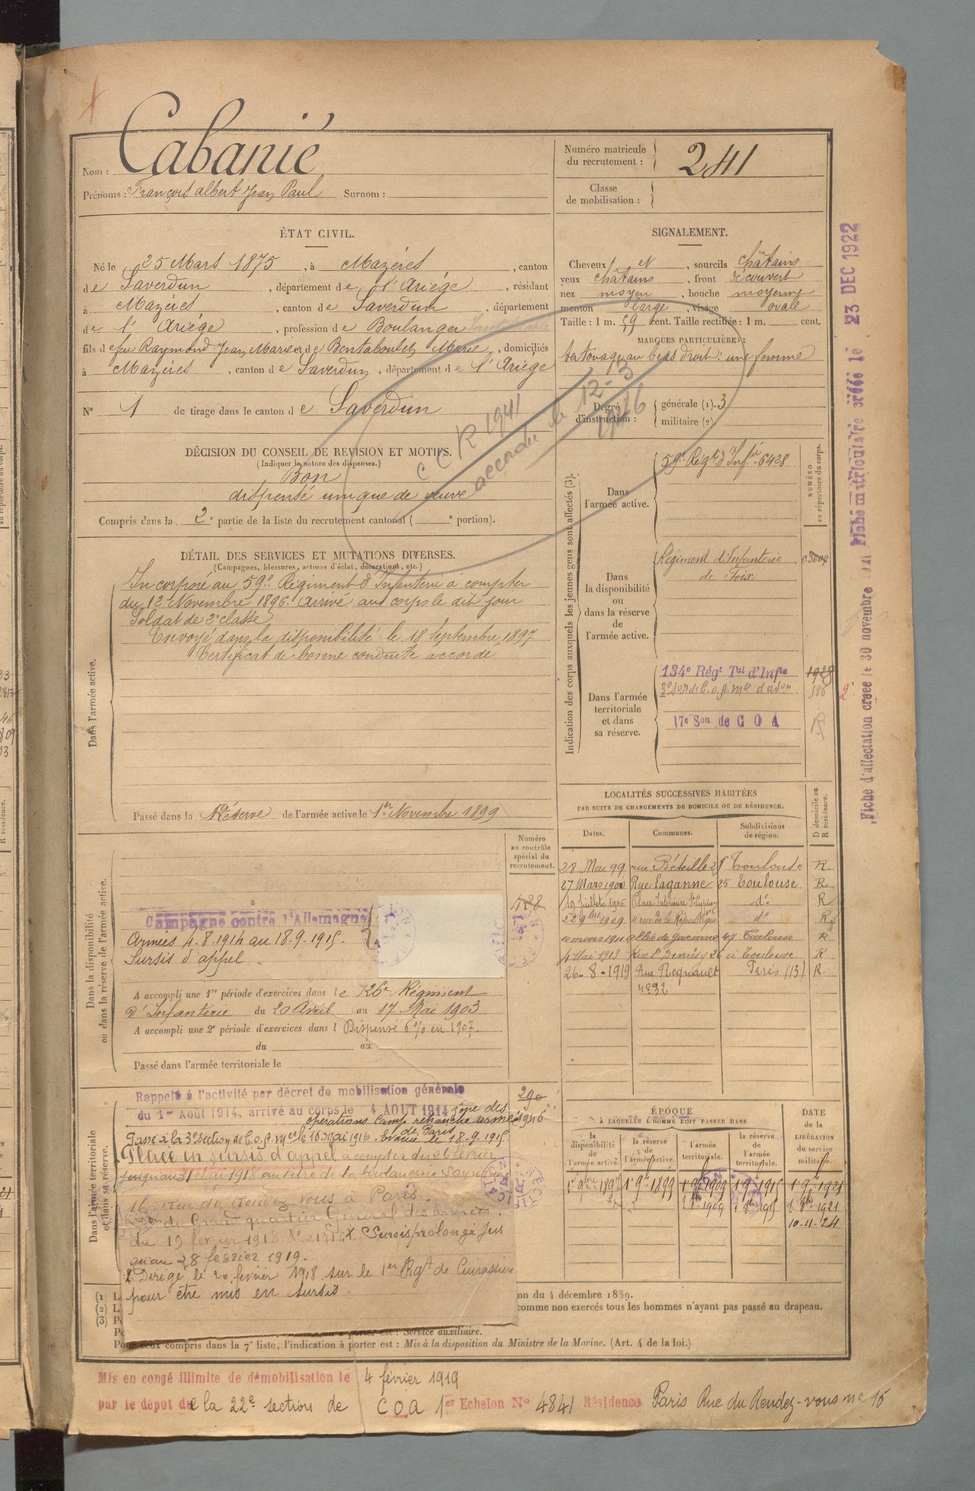 Nom : Cabanié
Prénoms : François Albert Jean Paul Surnom :
Numéro matricule du recrutement : 241
Classe de mobilisation :
ÉTAT CIVIL.
Né le 25 Mars 1875, à Mazères, canton
de Saverdun, département de l'Ariège, résidant
à Mazères, canton de Saverdun, département
de l'Ariège, profession de Boulanger
fils de feu Raymond Jean Marie et de Marie, domiciliés
à Mazères, canton de Saverdun, département de l'Ariège
N° 1 de tirage dans le canton de Saverdun
SIGNALEMENT.
Cheveux N, sourcils châtains
yeux châtains, front découvert
nez moyen, bouche moyenne
menton large, visage ovale
Taille : 1 m. 59 cent. Taille rectifiée : 1 m. cent.
MARQUES PARTICULIÈRES :
tatouage au bras droit : une femme
Degré d'instruction : générale (1). 3
militaire (2).
C R 1941
accordé le 12-3
DÉCISION DU CONSEIL DE REVISION ET MOTIFS.
(Indiquer la nature des dispenses.)
Bon
dispensé unique de veuve
Compris dans la 2e partie de la liste du recrutement cantonal ( e portion).
DÉTAIL DES SERVICES ET MUTATIONS DIVERSES.
(Campagnes, blessures, actions d'éclat, décorations, etc.)
Dans l'armée active.
Incorporé au 59e Régiment d'Infanterie a compter
du 12 Novembre 1896. Arrivé au corps le dit jour
Soldat de 2e classe
Envoyé dans la disponibilité le 18 Septembre 1897
Certificat de bonne conduite accordé
Passé dans la Réserve de l'armée active le 1er Novembre 1899
Indication des corps auxquels les jeunes gens sont affectés (3).
NUMÉRO au répertoire du corps.
Dans l'armée active.
59e Régt d'Inftie 6428
Dans la disponibilité ou dans la réserve de l'armée active.
Régiment d'Infanterie
de Foix
Dans l'armée territoriale et dans sa réserve.
134e Régt Tal d'Infie
17e Son de C O A
Fiche d'affectation créée le 30 novembre
Fiche matriculaire créée le 23 DEC 1922
LOCALITÉS SUCCESSIVES HABITÉES
PAR SUITE DE CHANGEMENTS DE DOMICILE OU DE RÉSIDENCE.
Dates. Communes. Subdivisions de région. D domicile ou R résidence.
28 Mai 99 rue Béteille 25 Toulouse R
27 Mars 1900 Rue Laganne 25 Toulouse R
do R
do R
Toulouse R
Toulouse R
26-8-1919 Rue Regnault Paris (13) R
4892
Numéro au contrôle spécial du recrutement.
Dans la disponibilité ou dans la réserve de l'armée active.
Campagne contre l'Allemagne
Armées 4.8.1914 au 18.9.1915.
Sursis d'appel.
A accompli une 1re période d'exercices dans le 126e Régiment
d'Infanterie du 20 Avril au 17 Mai 1903
A accompli une 2e période d'exercices dans l Dispensé 6% en 1907.
du au
Passé dans l'armée territoriale le
Dans l'armée territoriale et dans sa réserve.
Rappelé à l'activité par décret de mobilisation générale
du 1er Août 1914, arrivé au corps le 4 AOUT 1914
Passé à la 3e section de C.o.a. mcs le 16 mai 1916
Placé en sursis d'appel à compter du 6 février
jusqu'au 31 mai 1918 au titre de la boulangerie
16 rue du Rendez vous à Paris.
du Grand quartier Général des armées
du 19 février 1918. Sursis prolongé jus
qu'au 28 février 1919.
Dirigé le 20 février 1918 sur le 1er Rgt de Cuirassiers
pour être mis en sursis.
ÉPOQUE
À LAQUELLE L'HOMME DOIT PASSER DANS
la disponibilité de l'armée active.
la réserve de l'armée active.
l'armée territoriale.
la réserve de l'armée territoriale.
DATE DE LA LIBÉRATION du service militaire.
10-11-24
on du 4 décembre 1889.
comme non exercés tous les hommes n'ayant pas passé au drapeau.
est : Service auxiliaire.
Pour ceux compris dans la 7e liste, l'indication à porter est : Mis à la disposition du Ministre de la Marine. (Art. 4 de la loi.)
Mis en congé illimité de démobilisation le 4 février 1919
par le dépot de la 22e section de COA 1er Echelon N° 4841 Résidence Paris Rue du Rendez-vous no 16